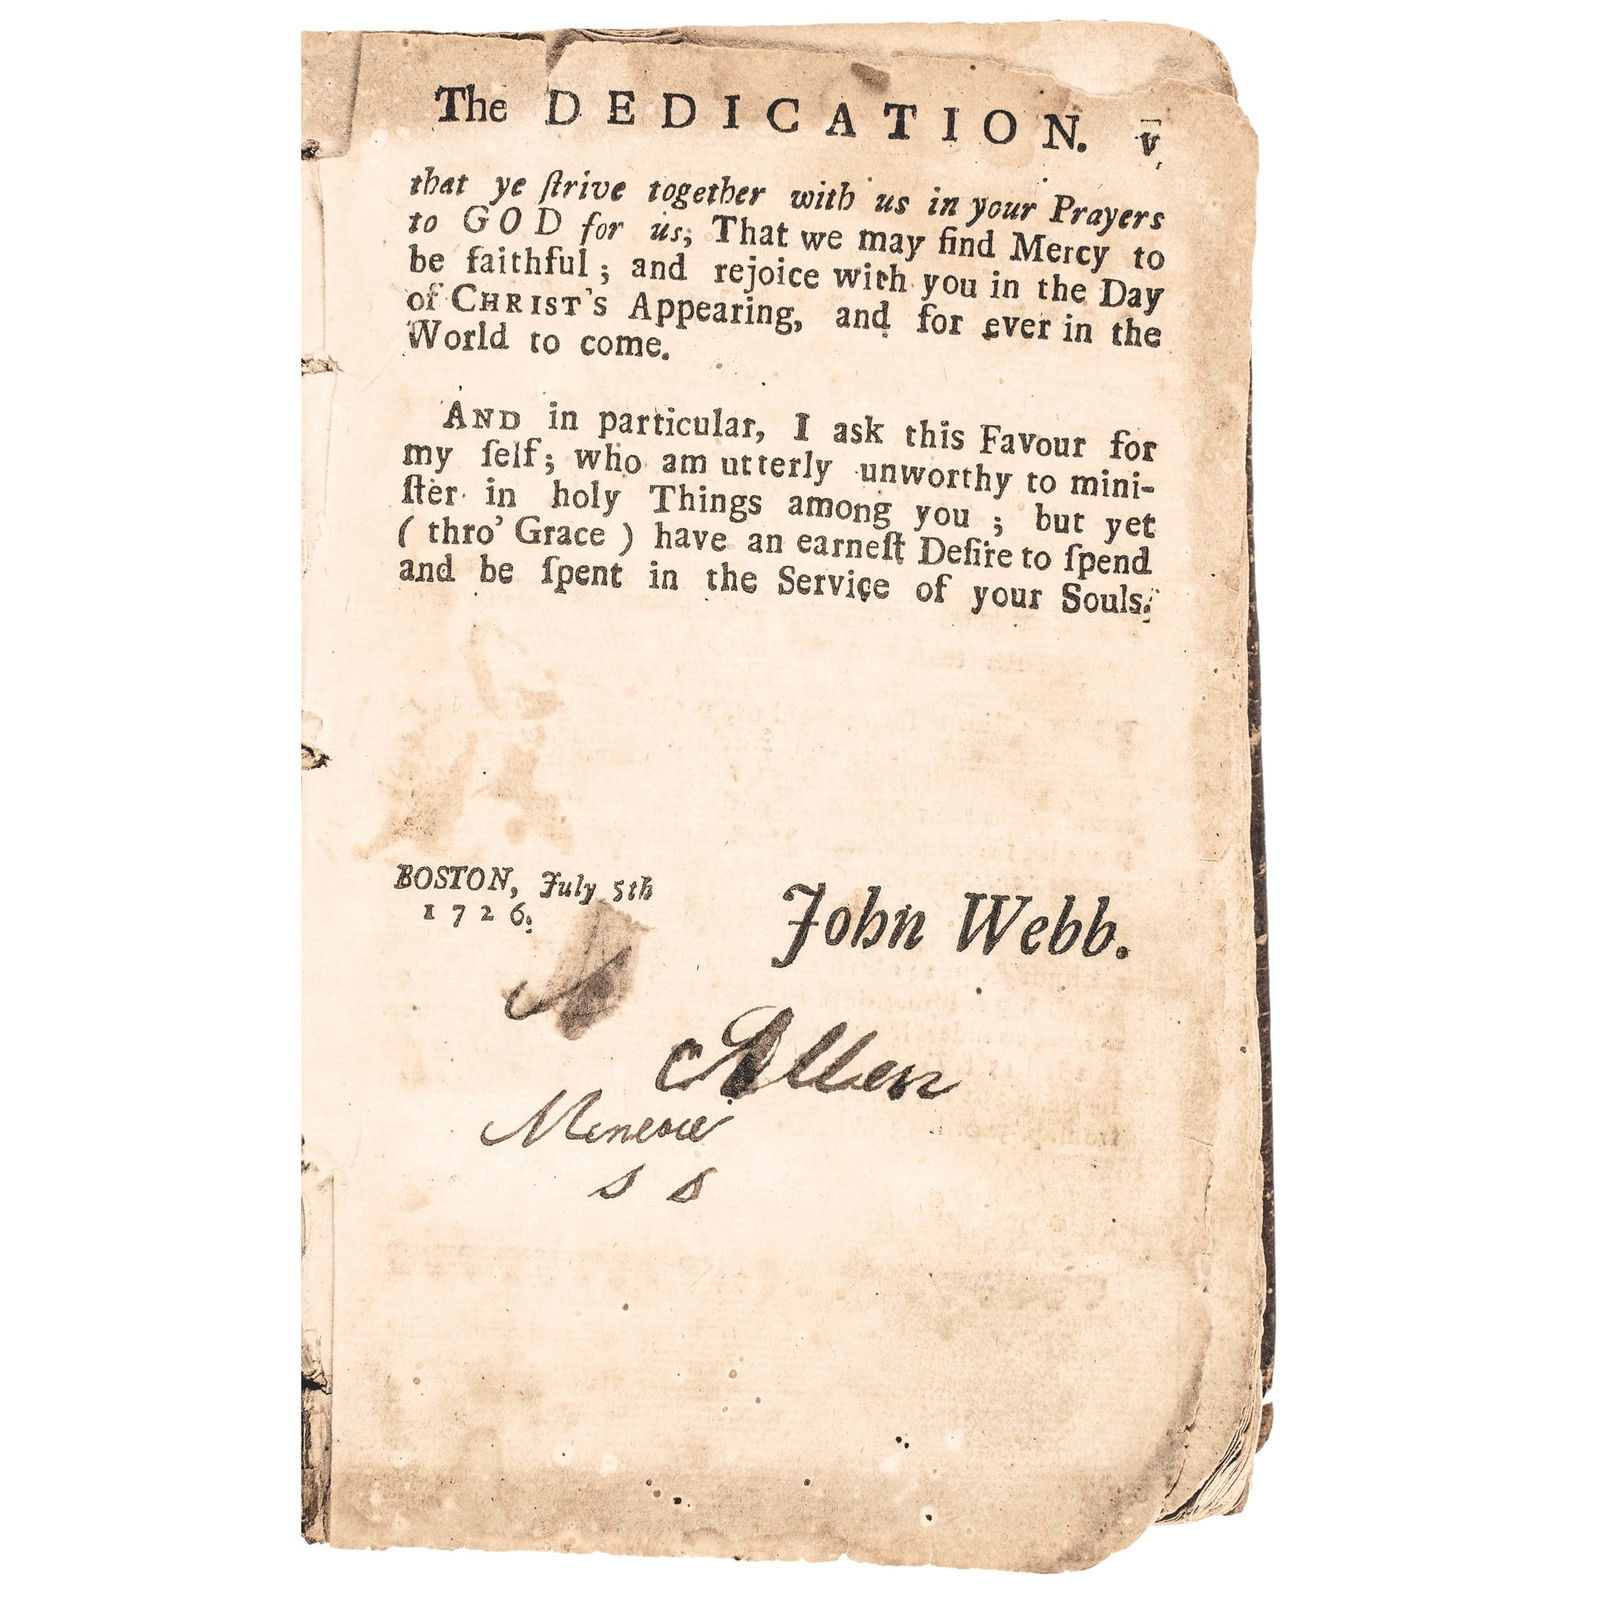 The DEDICATION. v
that ye ſtrive together with us in your Prayers
to GOD for us, That we may find Mercy to
be faithful; and rejoice with you in the Day
of CHRIST'S Appearing, and for ever in the
World to come.
AND in particular, I ask this Favour for
my ſelf; who am utterly unworthy to mini-
ſter in holy Things among you; but yet
(thro' Grace) have an earneſt Deſire to ſpend
and be ſpent in the Service of your Souls.
BOSTON, July 5th
1726.
John Webb.
Allen